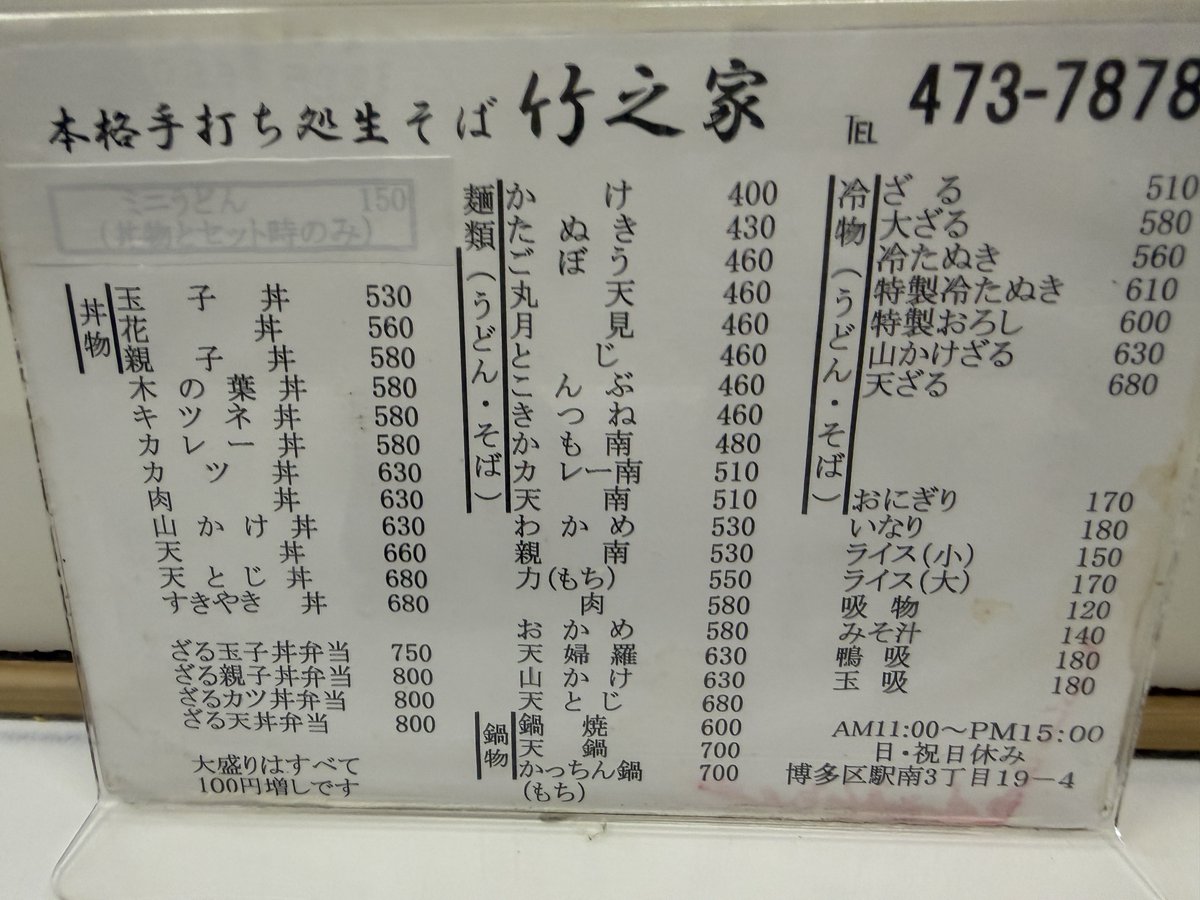 本格手打ち処生そば 竹之家 TEL 473-7878
ミニうどん 150
(丼物とセット時のみ)
丼物
玉子丼 530
花丼 560
親子丼 580
木の葉丼 580
キツネ丼 580
カレー丼 580
カツ丼 630
肉丼 630
山かけ丼 630
天丼 660
天とじ丼 680
すきやき丼 680
ざる玉子丼弁当 750
ざる親子丼弁当 800
ざるカツ丼弁当 800
ざる天丼弁当 800
大盛りはすべて
100円増しです
麺類(うどん・そば)
かけ 400
たぬき 430
ごぼう 460
丸天 460
月見 460
とじ 460
こんぶ 460
きつね 460
かも南 480
カレー南 510
天南 510
わかめ 530
親南 530
力(もち) 550
肉 580
おかめ 580
天婦羅 630
山かけ 630
天とじ 680
鍋物
鍋焼 600
天鍋 700
かっちん鍋 700
(もち)
冷物(うどん・そば)
ざる 510
大ざる 580
冷たぬき 560
特製冷たぬき 610
特製おろし 600
山かけざる 630
天ざる 680
おにぎり 170
いなり 180
ライス(小) 150
ライス(大) 170
吸物 120
みそ汁 140
鴨吸 180
玉吸 180
AM11:00〜PM15:00
日・祝日休み
博多区駅南3丁目19-4